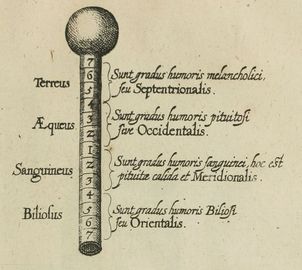 7
6
5
4
3
2
1
2
3
4
5
6
7
Terreus
Sunt gradus humoris melancholici,
seu Septentrionalis.
Æqueus
Sunt gradus humoris pituitosi
sive Occidentalis.
Sanguineus
Sunt gradus humoris sanguinei, hoc est
pituitæ calida et Meridionalis.
Biliosus
Sunt gradus humoris Biliosi
seu Orientalis.